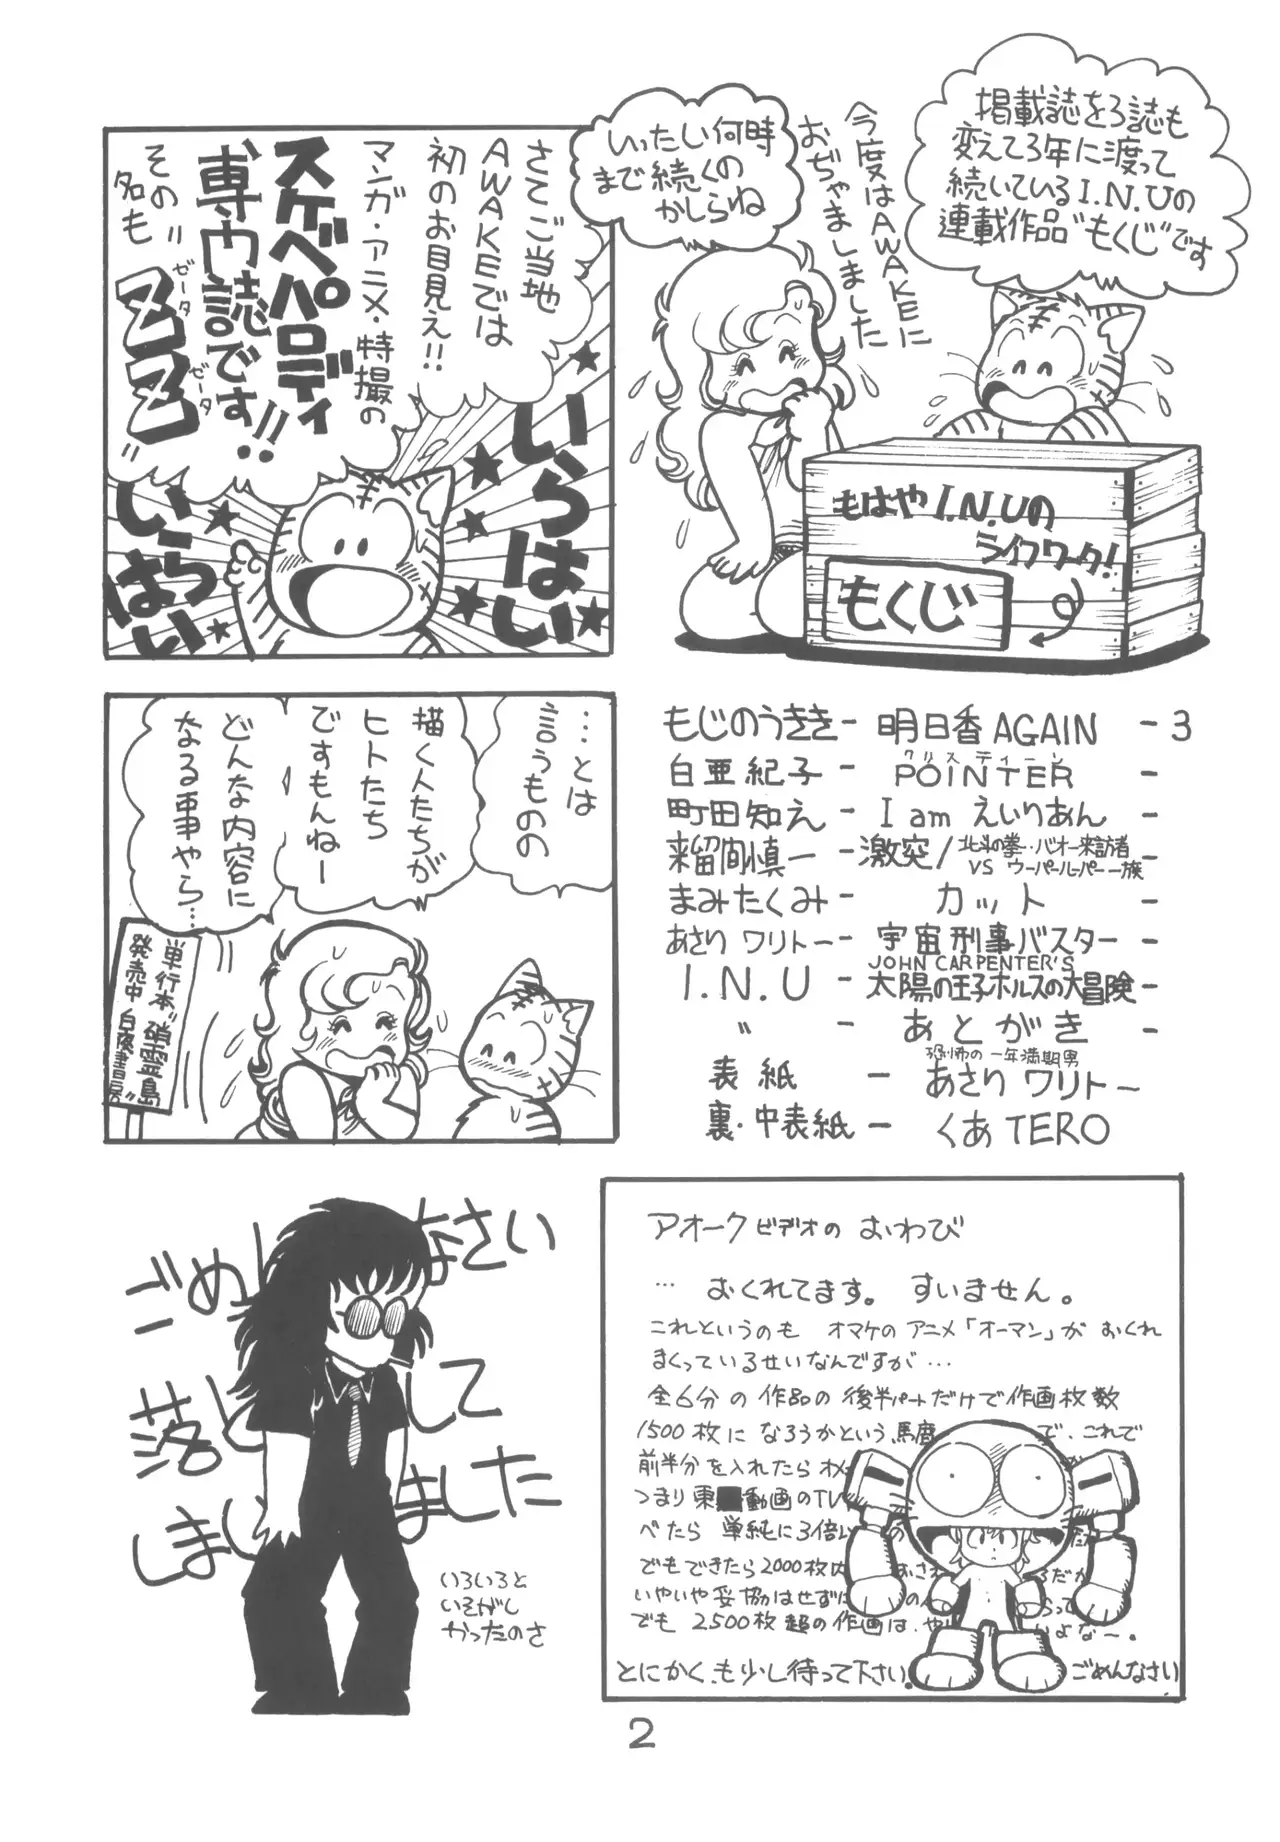 掲載誌を3誌も
変えて3年に渡って
続いているI.N.Uの
連載作品"もくじ"です
今度はAWAKEに
おぢゃましました
いったい何時
まで続くの
かしらね
もはやI.N.Uの
ライフワーク!
もくじ
さてご当地
AWAKEでは
初のお目見え!!
マンガ・アニメ・特撮の
スケベパロディ
専門誌です!!
その名も
"ZZ"
ゼータ
ゼータ
いらはい
いらはい
…とは
言うものの
描く人たちが
ヒトたち
ですもんねー
どんな内容に
なる事やら…
単行本"硝霊島"
発売中 白夜書房
もじのうきき- 明日香AGAIN -3
クリスティーン
白亜紀子 - POINTER -
町田知え - I am えいりあん -
来留間慎一 - 激突/北斗の拳・バオー来訪者 VS ウーパールーパー一族 -
まみたくみ - カット -
あさり ワリトー - 宇宙刑事バスター -
JOHN CARPENTER'S
I.N.U - 太陽の王子ホルスの大冒険 -
〃 - あとがき -
恐怖の一年満期男
表紙 - あさり ワリトー
裏・中表紙 - くあTERO
ごめんなさい
落として
しまいました
いろいろと
いそがし
かったのさ
アオークビデオの おわび
… おくれてます。 すいません。
これというのも オマケのアニメ「オーマン」が おくれ
まくっているせいなんですが…
全6分の作品の後半パートだけで作画枚数
1500枚に なろうかという、馬鹿 で、これで
前半分を入れたら
つまり東 動画のTV
べたら 単純に3倍 の
でもできたら2000枚内 おさ
いやいや妥協はせずに
でも 2500枚 超の作画は、や よな〜。
とにかく、も少し待って下さい。 ごめんなさい
2